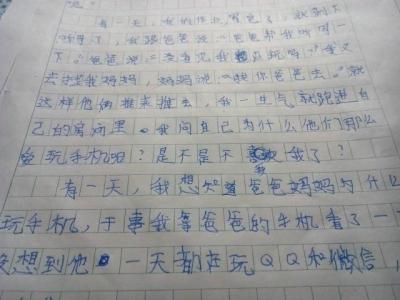 有一天，我的作业写完了，就剩下
听写了，我跟爸爸说：“爸爸帮我听写一
下。”爸爸说：“没看见我在玩吗？”我又
去找我妈妈，妈妈说：“找你爸爸去。”就
这样他俩推来推去，我一生气就跑进自
己的房间里。我问自己为什么他们那么
爱玩手机呢？是不是不我了？
有一天，我想知道爸爸妈妈为什
玩手机，于事我拿爸爸的手机看了一
没想到他一天都在玩QQ和微信，